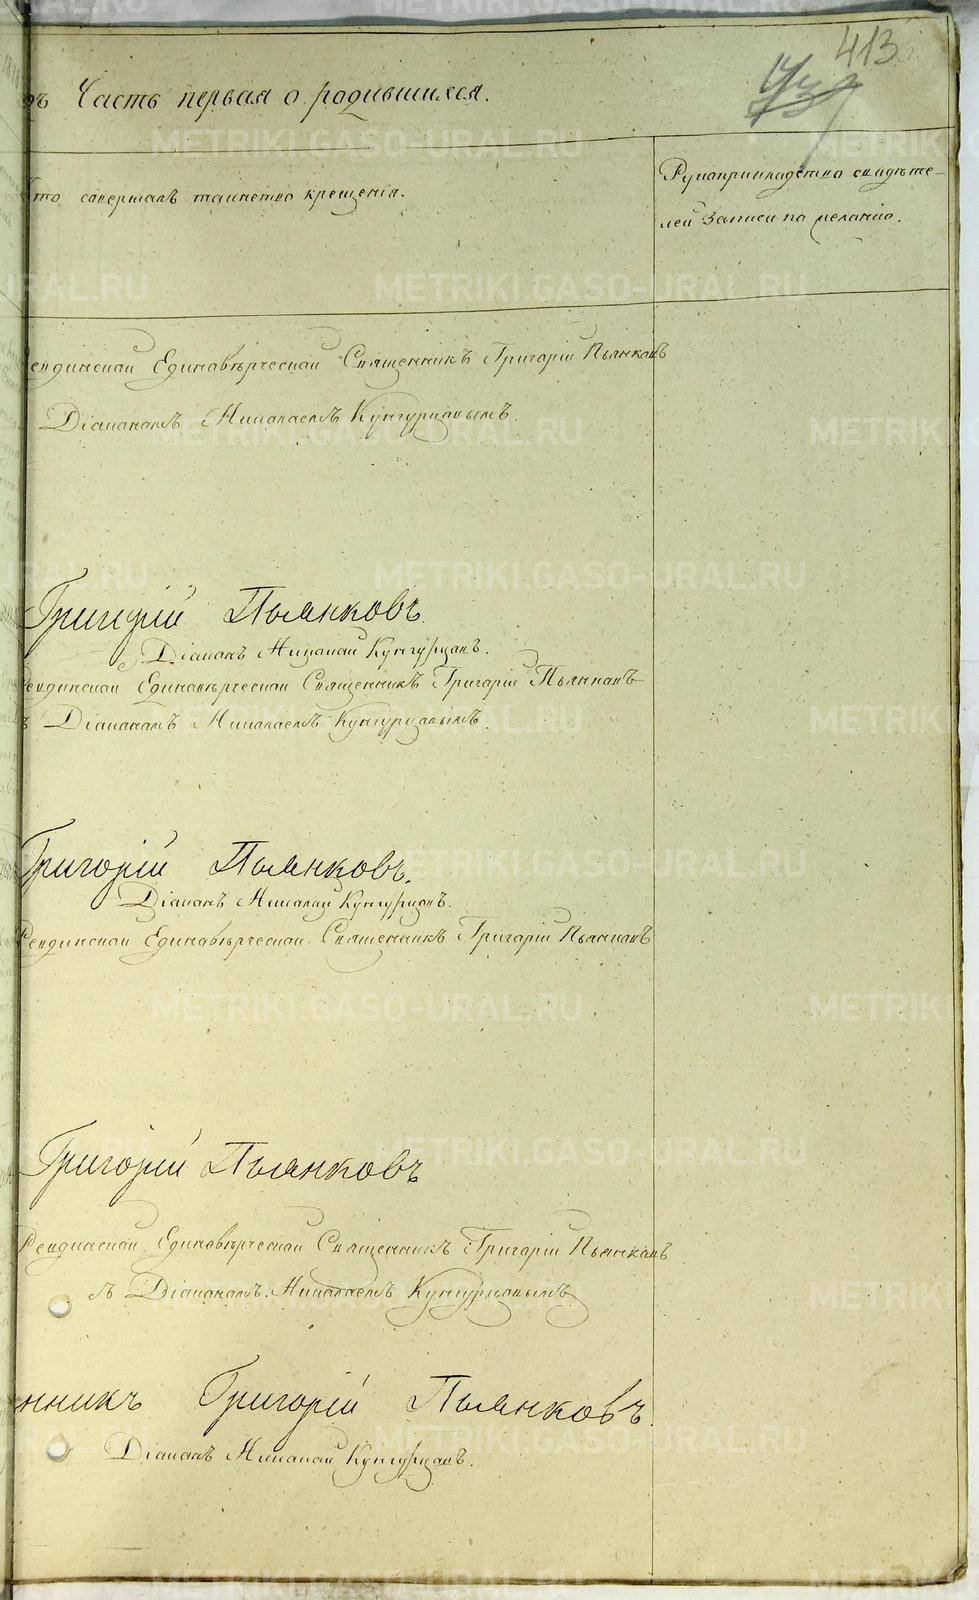 413
Часть первая о родившихся.
Кто совершалъ таинство крещенія.
Рукоприкладство свидѣте-
лей записи по желанію.
Ревдинской Единовѣрческой Священникъ Григорій Пьянковъ
Діакономъ Николаемъ Кунгурцовымъ.
Григорій Пьянковъ.
Діаконъ Николай Кунгурцовъ.
Ревдинской Единовѣрческой Священникъ Григорій Пьянковъ
ъ Діакономъ Николаемъ Кунгурцовымъ.
Григорій Пьянковъ.
Діаконъ Николай Кунгурцовъ.
Ревдинской Единовѣрческой Священникъ Григорій Пьянковъ
Григорій Пьянковъ
Ревдинской Единовѣрческой Священникъ Григорій Пьянковъ
съ Діакономъ Николаемъ Кунгурцовымъ.
нникъ Григорій Пьянковъ.
Діаконъ Николай Кунгурцовъ.
METRIKI.GASO-URAL.RU